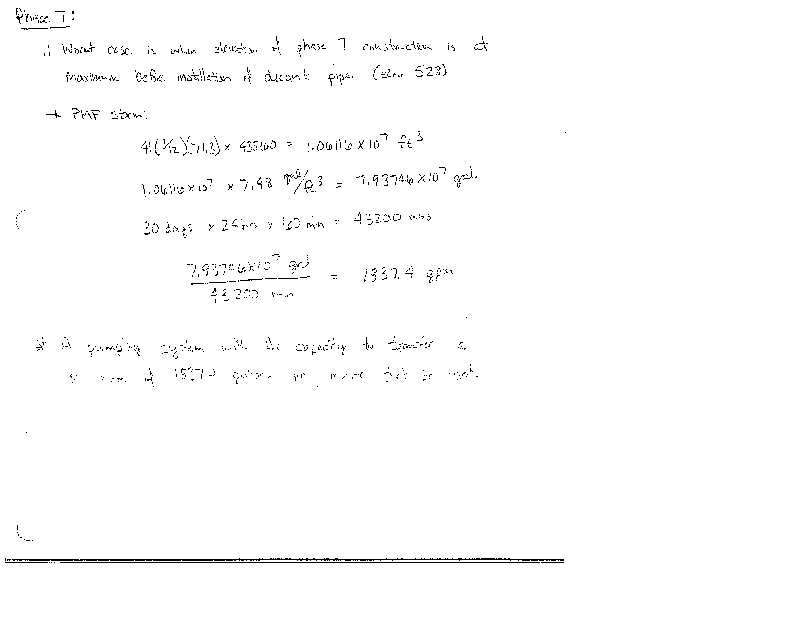 Phase I:
∴ Worst case is when elevation of phase I construction is at
maximum before installation of decant pipe (elev. 528)
→ PMF storm:
(71.3) × 43560 = 1.06116 × 10⁷ ft³
1.06116 × 10⁷ × 7.48 gal/ft³ = 7.93746 × 10⁷ gal.
30 days × 24 hrs × 60 min = 43200 mins
7.93746 × 10⁷ gal
43200 min
= 1837.4 gpm
A pumping system with the capacity to transfer a
of 1837.4 gallons must be used.